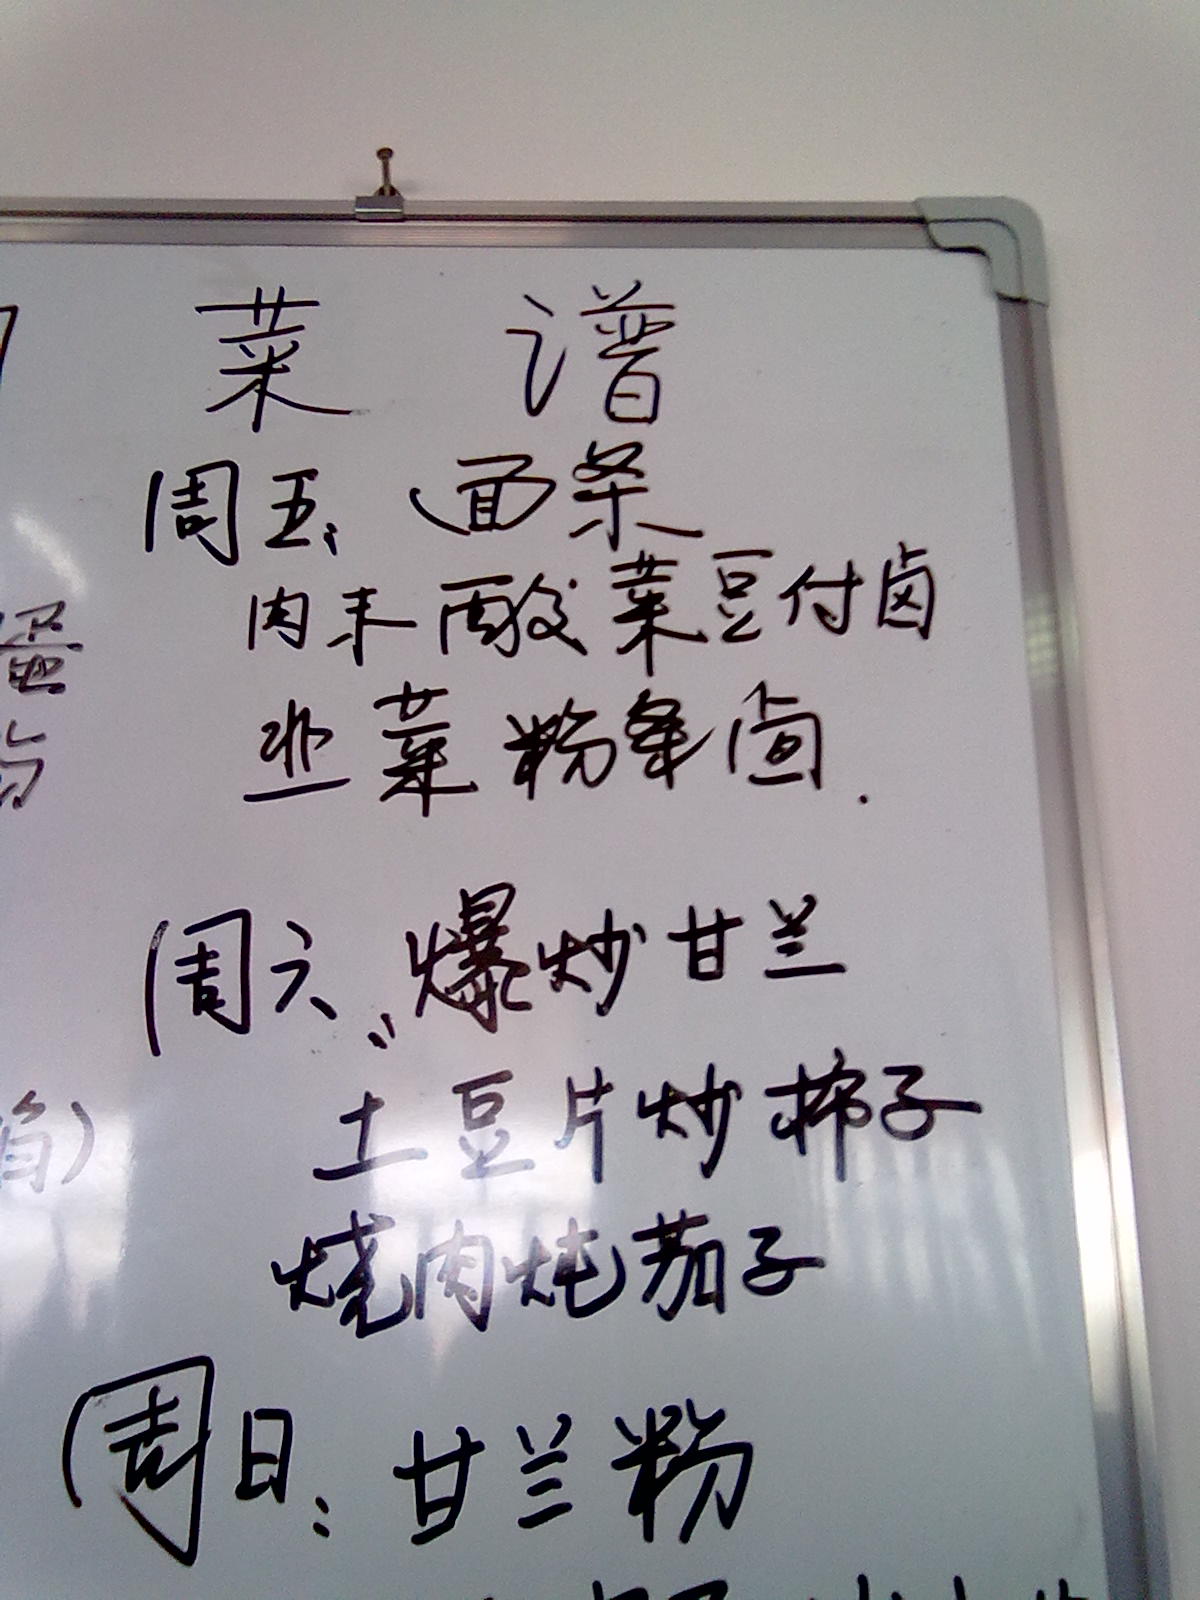 菜 谱
周五: 面条
肉末酸菜豆付卤
韭菜粉条卤.
周六: 爆炒甘兰
土豆片炒柿子
烧肉炖茄子
周日: 甘兰粉
蛋